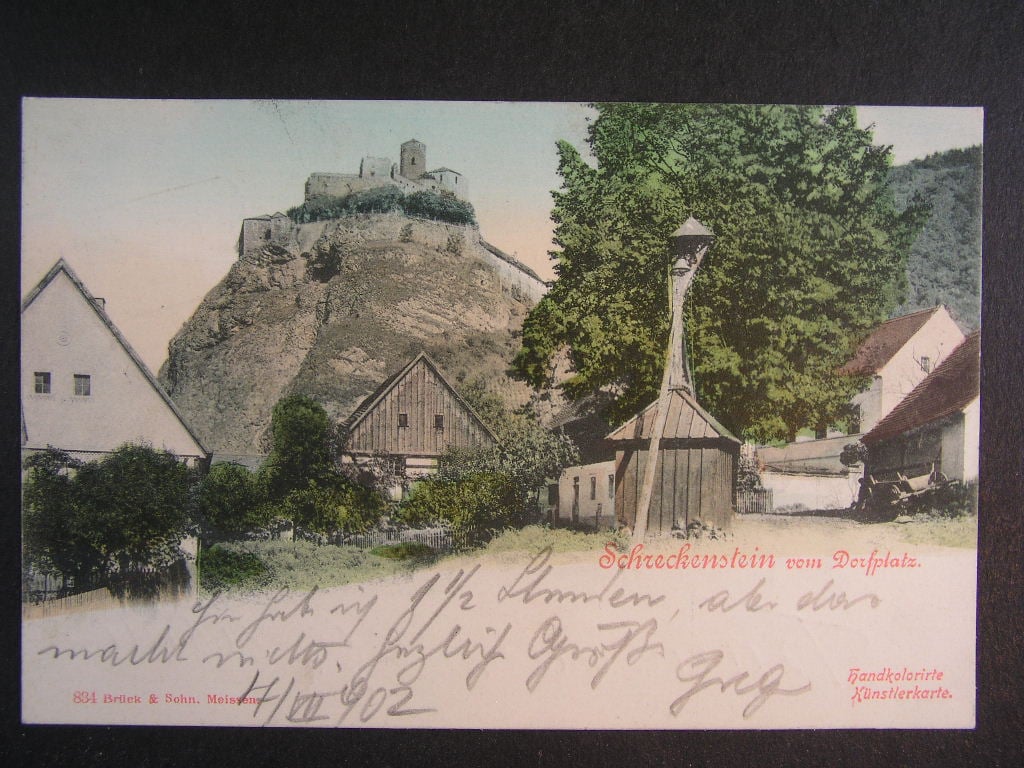 Schreckenstein vom Dorfplatz.
hab ich 1 1/2 Stunden, aber das
macht nichts. herzlich Gruß
Greg
17/VII 902
Handkolorirte
Künstlerkarte.
834 Brück & Sohn, Meissen.